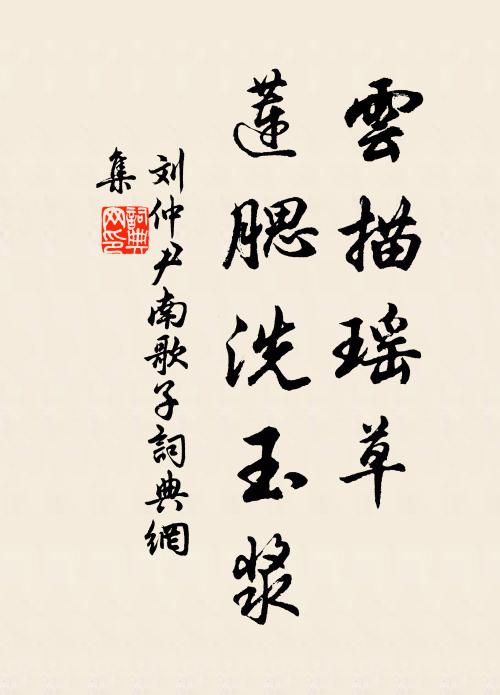 雲描瑶草
蓮腮洗玉漿
刘仲尹南歌子詞典網
集
詞典
网印